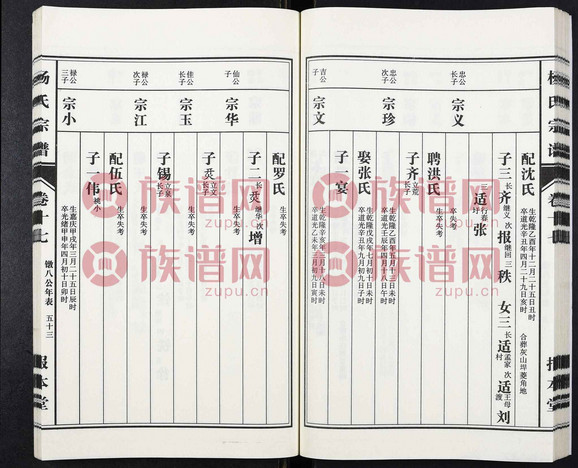 杨氏宗谱
卷十七
报本堂
忠公长子
宗义
配沈氏
生乾隆乙酉年十二月二十五日丑时
卒道光辛丑年四月二十九日亥时
合葬灰山埠菱角地
子三 长齐继义 次报继回 三秩
女三 长适孟家村 次适王母渡刘
三适行卷圩张
聘洪氏
卒失考
生卒失考
子齐 立荒长子
忠公次子
宗珍
娶张氏
生乾隆戊戌年七月初十日子时
卒道光辛丑年九月初九日子时
子一宴
吉公子
宗文
杨氏宗谱
卷十七
徽八公年表
五十三
报本堂
仙公子
宗华
配罗氏
生卒失考
子二 长烎继华 次增
佳公长子
宗玉
生卒失考
子烎 立文长子
禄公次子
宗江
生卒失考
子锡 立泉长子
禄公三子
宗小
配伍氏
生卒失考
子一伟 祧小
生嘉庆甲戌年三月二十五日辰时
卒光绪甲申年四月初十日卯时
族谱网
zupu.cn
族谱网
zupu.cn